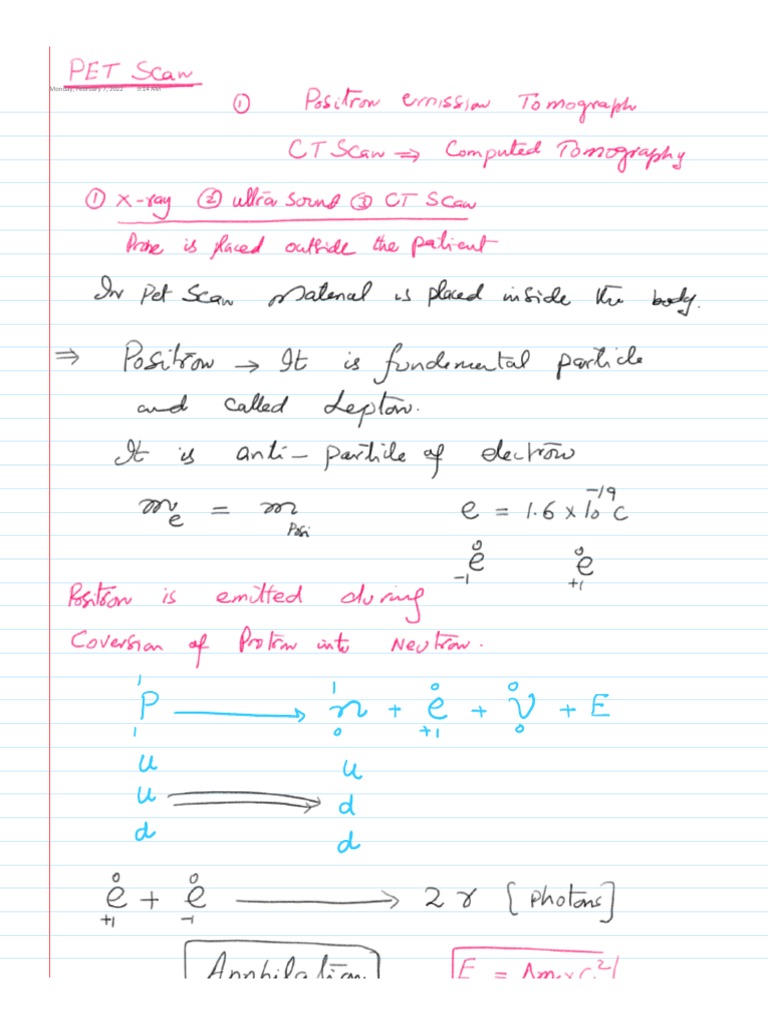 PET Scan
Monday, February 7, 2022 9:14 AM
① Positron emission Tomograph
CT Scan ⇒ Computed Tomography
① X-ray ② ultra sound ③ CT Scan
is placed outside the patient
In Pet Scan Material is placed inside the body.
⇒ Positron → It is fundemental particle
and called Lepton.
It is anti-partile of electron
mₑ = m_Posi e = 1.6 × 10⁻¹⁹ C
⁰₋₁e ⁰₊₁e
Positron is emitted during
Coversion of Proton into Neutron.
¹₁P ⟶ ¹₀n + ⁰₊₁e + ⁰₀ν + E
u u
u ⇒ d
d d
⁰₊₁e + ⁰₋₁e ⟶ 2 γ [photons]
Annhilation E = Δm × c²